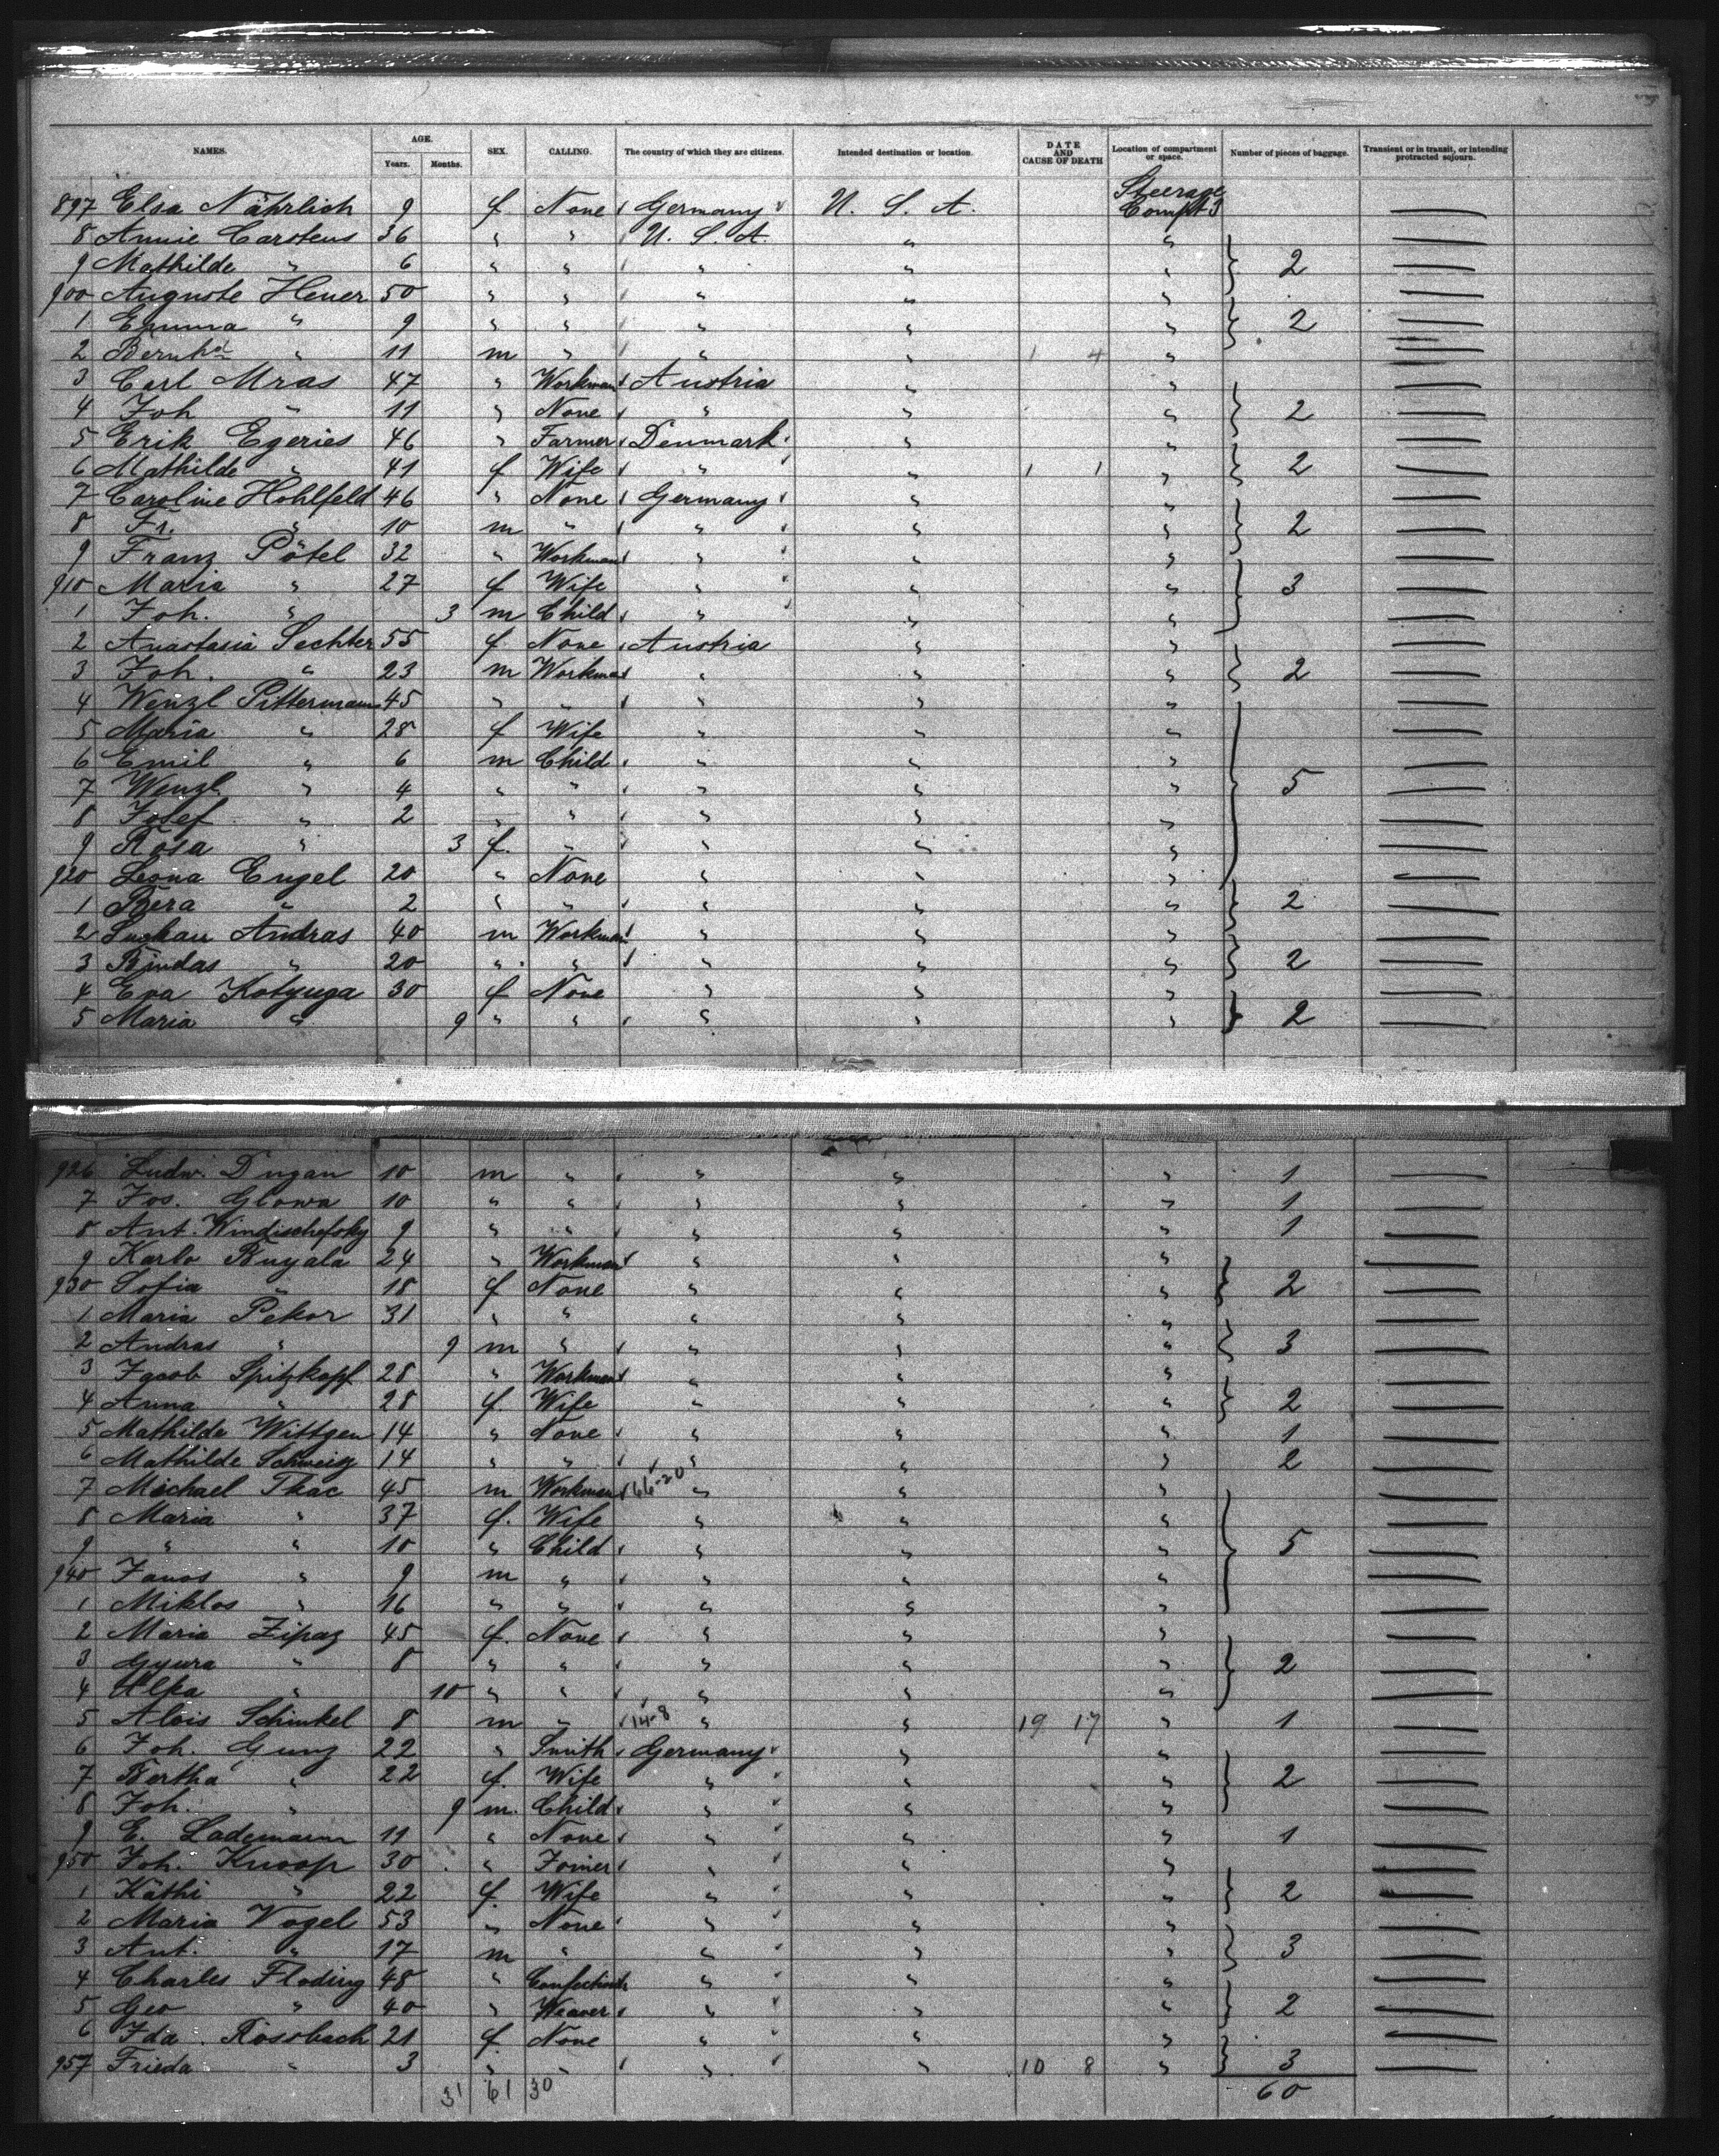 NAMES. AGE. Years. Months. SEX. CALLING. The country of which they are citizens. Intended destination or location. DATE AND CAUSE OF DEATH Location of compartment or space. Number of pieces of baggage. Transient or in transit, or intending protracted sojourn.
897 Elsa Nährlich 9 f None Germany U. S. A. Steerage Compt 3 —
8 Annie Carstens 36 " " U. S. A. " " —
9 Mathilde " 6 " " " " " 2 —
900 Auguste Heuer 50 " " " " " —
1 Emma " 9 " " " " " 2 —
2 Bernhd " 11 m " " " 1 4 " —
3 Carl Mras 47 " Workman Austria " " —
4 Joh " 11 " None " " " 2 —
5 Erik Egeries 46 " Farmer Denmark " " —
6 Mathilde " 41 f Wife " " 1 1 " 2 —
7 Caroline Hohlfeld 46 " None Germany " " —
8 Fr. " 10 m " " " " 2 —
9 Franz Pötel 32 " Workman " " " —
910 Maria " 27 f Wife " " " 3 —
1 Joh. " 3 m Child " " " —
2 Anastasia Sechter 55 f None Austria " " —
3 Joh. " 23 m Workman " " " 2 —
4 Wenzl Pittermann 45 " " " " " —
5 Maria " 28 f Wife " " " —
6 Emil " 6 m Child " " " —
7 Wenzl " 4 " " " " " 5 —
8 Josef " 2 " " " " " —
9 Rosa " 3 f. " " " " —
920 Leona Engel 20 " None " " " —
1 Bera " 2 " " " " " 2 —
2 Andras 40 m Workman " " " —
3 Bindas " 20 " " " " " 2 —
4 Eva Kotyuga 30 f None " " " —
5 Maria " 9 " " " " " 2 —
926 Ludw. Dugan 10 m " " " " 1 —
7 Jos. Glowa 10 " " " " " 1 —
8 Ant. Windischefsky 9 " " " " " 1 —
9 Karlo Buyala 24 " Workman " " " —
930 Sofia " 18 f None " " " 2 —
1 Maria Pekor 31 " " " " " —
2 Andras " 9 m " " " " 3 —
3 Jacob Spitzkopf 28 " Workman " " " —
4 Anna " 28 f. Wife " " " 2 —
5 Mathilde Wittgen 14 " None " " " 1 —
6 Mathilde Schweig 14 " " " " " 2
7 Michael Tkac 45 m Workman 66-20 " " " —
8 Maria " 37 f. Wife " " " —
9 " " 10 " Child " " " 5 —
940 Janos " 9 m " " " " —
1 Miklos " 16 " " " " " —
2 Maria Zipaz 45 f. None " " " —
3 Gyura " 8 " " " " " 2 —
4 " 10 " " " " " —
5 Alois Schinkel 8 m " 14-8 " " 19 17 " 1 —
6 Joh. Gunz 22 " Smith Germany " " —
7 Bertha " 22 f. Wife " " " 2 —
8 Joh. " 9 m. Child " " " —
9 E. Lademann 11 " None " " " 1 —
950 Joh. Knoop 30 " Joiner " " " —
1 Käthi " 22 f. Wife " " " 2 —
2 Maria Vogel 53 " None " " " —
3 Ant. " 17 m " " " " 3 —
4 Charles Floding 48 " " " " —
5 Geo " 40 " Weaver " " " 2 —
6 Ida Rossbach 21 f. None " " " —
957 Frieda " 3 " " " " 10 8 " 3 —
31 61 30 60